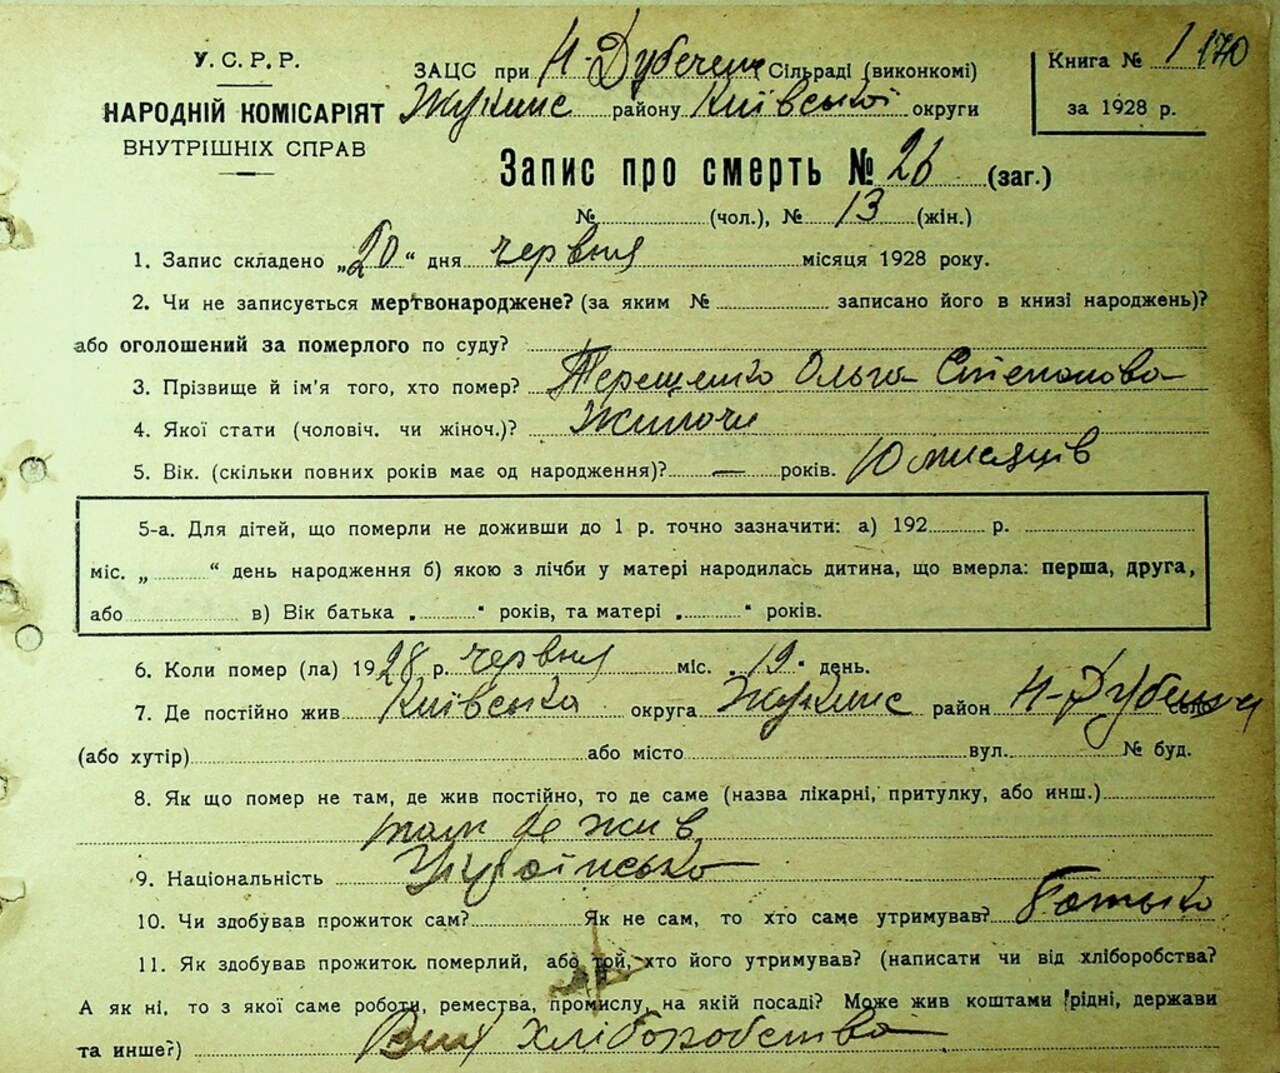 У. С. Р. Р.
НАРОДНІЙ КОМІСАРІЯТ
ВНУТРІШНІХ СПРАВ
ЗАЦС при Н-Дубечен Сільраді (виконкомі)
Жукинс району Київської округи
Книга № 1 170
за 1928 р.
Запис про смерть № 26 (заг.)
№ (чол.), № 13 (жін.)
1. Запис складено „20“ дня червня місяця 1928 року.
2. Чи не записується мертвонароджене? (за яким № записано його в книзі народжень)?
або оголошений за померлого по суду?
3. Прізвище й ім'я того, хто помер? Терещенко Ольга Степанова
4. Якої стати (чоловіч. чи жіноч.)? Жиночи
5. Вік. (скільки повних років має од народження)? — років. 10 мисяців
5-а. Для дітей, що померли не доживши до 1 р. точно зазначити: а) 192 р.
міс. „ “ день народження б) якою з лічби у матері народилась дитина, що вмерла: перша, друга,
або в) Вік батька „ “ років, та матері „ “ років.
6. Коли помер (ла) 1928 р. червня міс. „19“ день.
7. Де постійно жив Київська округа Жукинс район Н-Дубечня село
(або хутір) або місто вул. № буд.
8. Як що помер не там, де жив постійно, то де саме (назва лікарні, притулку, або инш.)
там де жив
9. Національність Українсько
10. Чи здобував прожиток сам? Як не сам, то хто саме утримував? Батько
11. Як здобував прожиток померлий, або той, хто його утримував? (написати чи від хліборобства?
А як ні, то з якої саме роботи, ремества, промислу, на якій посаді? Може жив коштами рідні, держави
та инше?) Вид хліборобства